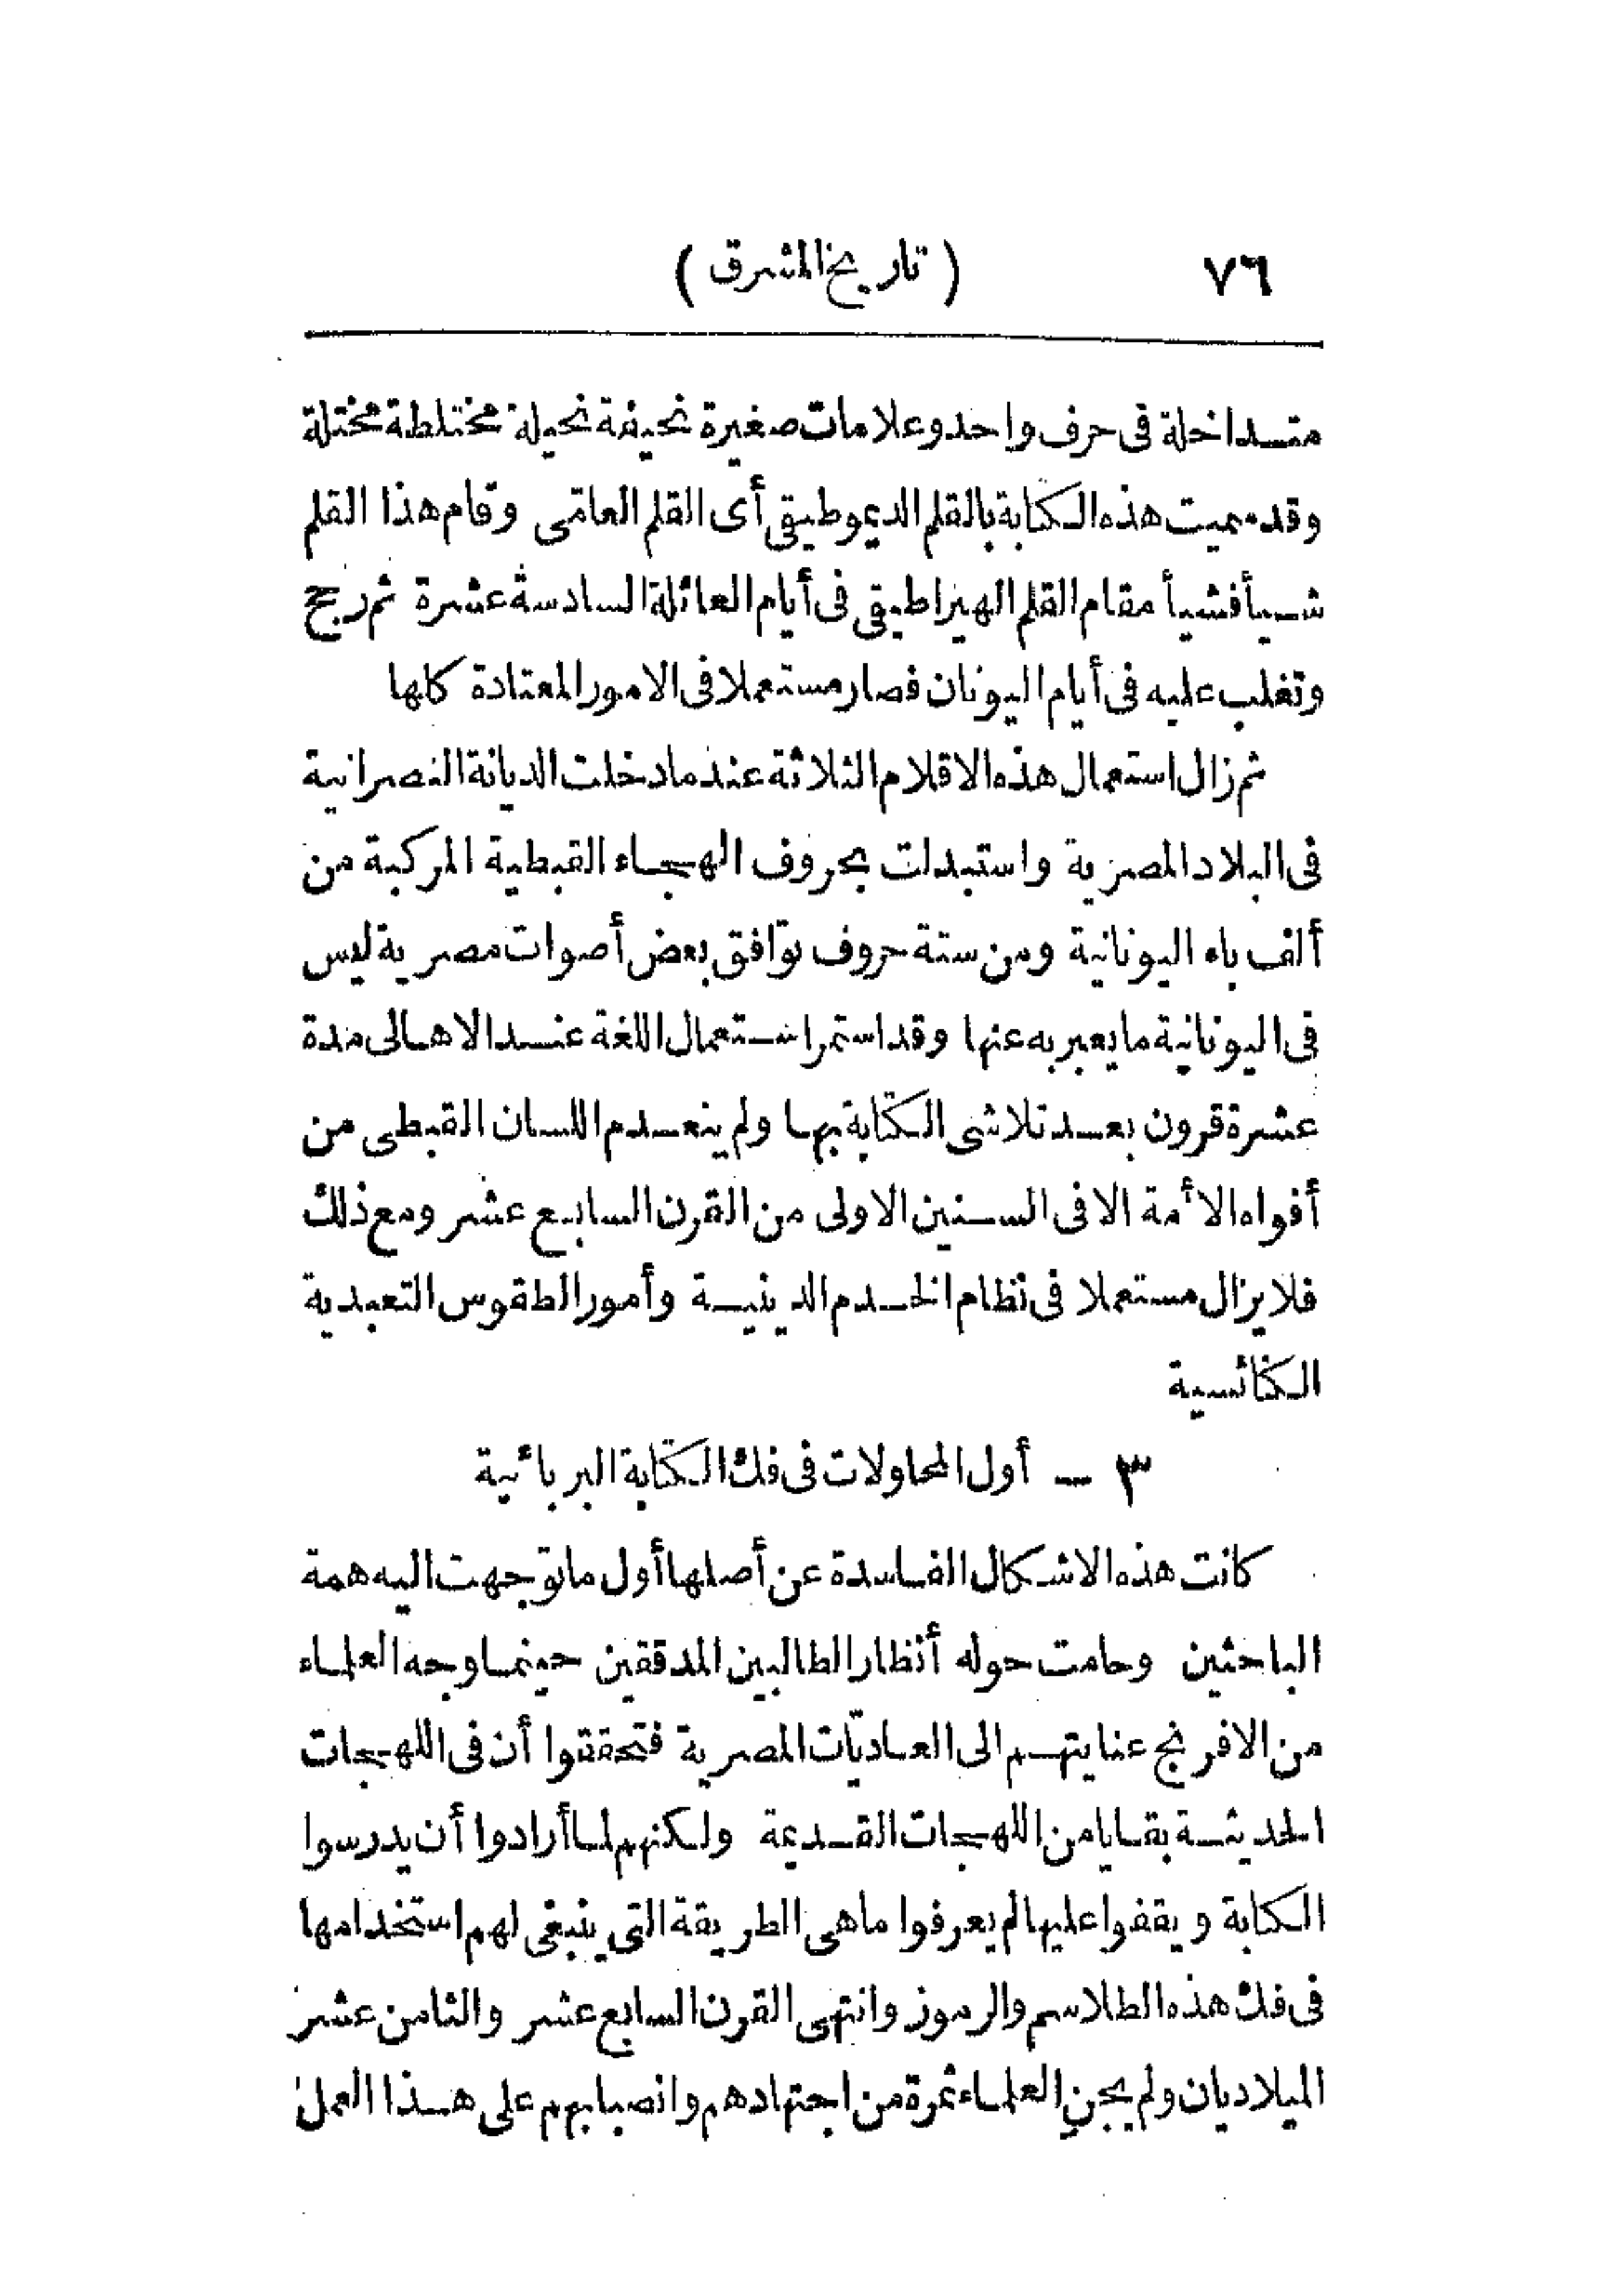 ٧٦ ( تاريخ المشرق )
متداخلة فى حرف واحد وعلامات صغيرة نحيفة نحيلة مختلطة مختلة
وقد سميت هذه الكتابة بالقلم الديموطيقى أى القلم العامّى وقام هذا القلم
شيأ فشيأ مقام القلم الهيراطيقى فى أيام العائلة السادسة عشرة ثم رجح
وتغلب عليه فى أيام اليونان فصار مستعملا فى الامور المعتادة كلها
ثم زال استعمال هذه الاقلام الثلاثة عند ما دخلت الديانة النصرانية
فى البلاد المصرية واستبدلت بحروف الهجاء القبطية المركبة من
ألف باء اليونانية ومن ستة حروف توافق بعض أصوات مصرية ليس
فى اليونانية ما يعبر به عنها وقد استمر استعمال اللغة عند الاهالى مدة
عشرة قرون بعد تلاشى الكتابة بها ولم ينعدم اللسان القبطى من
أفواه الأمة الا فى السنين الاولى من القرن السابع عشر ومع ذلك
فلا يزال مستعملا فى نظام الخدم الدينية وأمور الطقوس التعبدية
الكنائسية
٣ ــ أول المحاولات فى فك الكتابة البربائية
كانت هذه الاشكال الفاسدة عن أصلها أول ما توجهت اليه همة
الباحثين وحامت حوله أنظار الطالبين المدققين حينما وجه العلماء
من الافرنج عنايتهم الى العاديّات المصرية فتحققوا أن فى اللهجات
الحديثة بقايا من اللهجات القديمة ولكنهم لما أرادوا أن يدرسوا
الكتابة ويقفوا عليها لم يعرفوا ما هى الطريقة التى ينبغى لهم استخدامها
فى فك هذه الطلاسم والرموز وانتهى القرن السابع عشر والثامن عشر
الميلاديان ولم يجن العلماء ثمرة من اجتهادهم وانصبابهم على هذا العمل